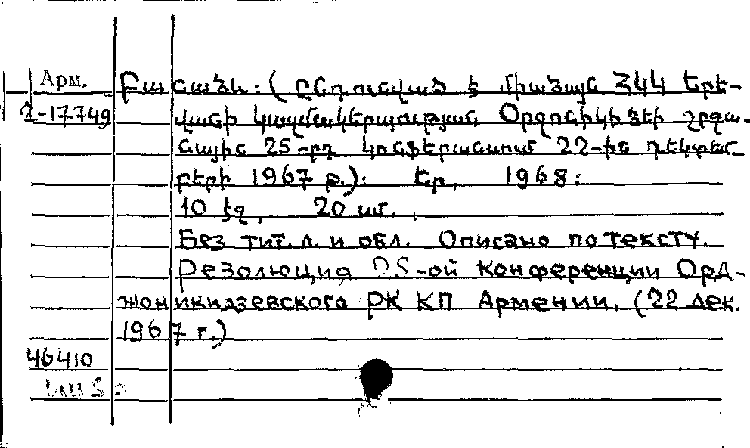 Арм.
2-17749
Բանաձև: (Ընդունված է միայն ՀԿԿ Երե-
վանի կազմակերպության Օրջոնիկիձեի շրջա-
նային 25-րդ կոնֆերանսում 22-ին դեկտեմ-
բերի 1967 թ.): Եր, 1968:
10 էջ, 20 սմ.
Без тит. л. и обл. Описано по тексту.
Резолюция 25-ой Конференции Орд-
жоникидзевского РК КП Армении, (22 дек.
1967 г.)
46410